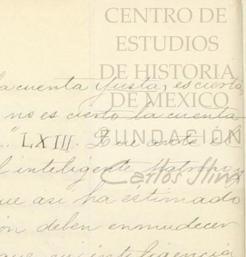 CENTRO DE
ESTUDIOS
DE HISTORIA
DE MÉXICO
FUNDACIÓN
Carlos Slim
la cuenta justa, es cierta
no es cierto la cuenta
"LXIII. Que
el inteligente
que asi ha estimado
deben enmudecer
que inteligencia